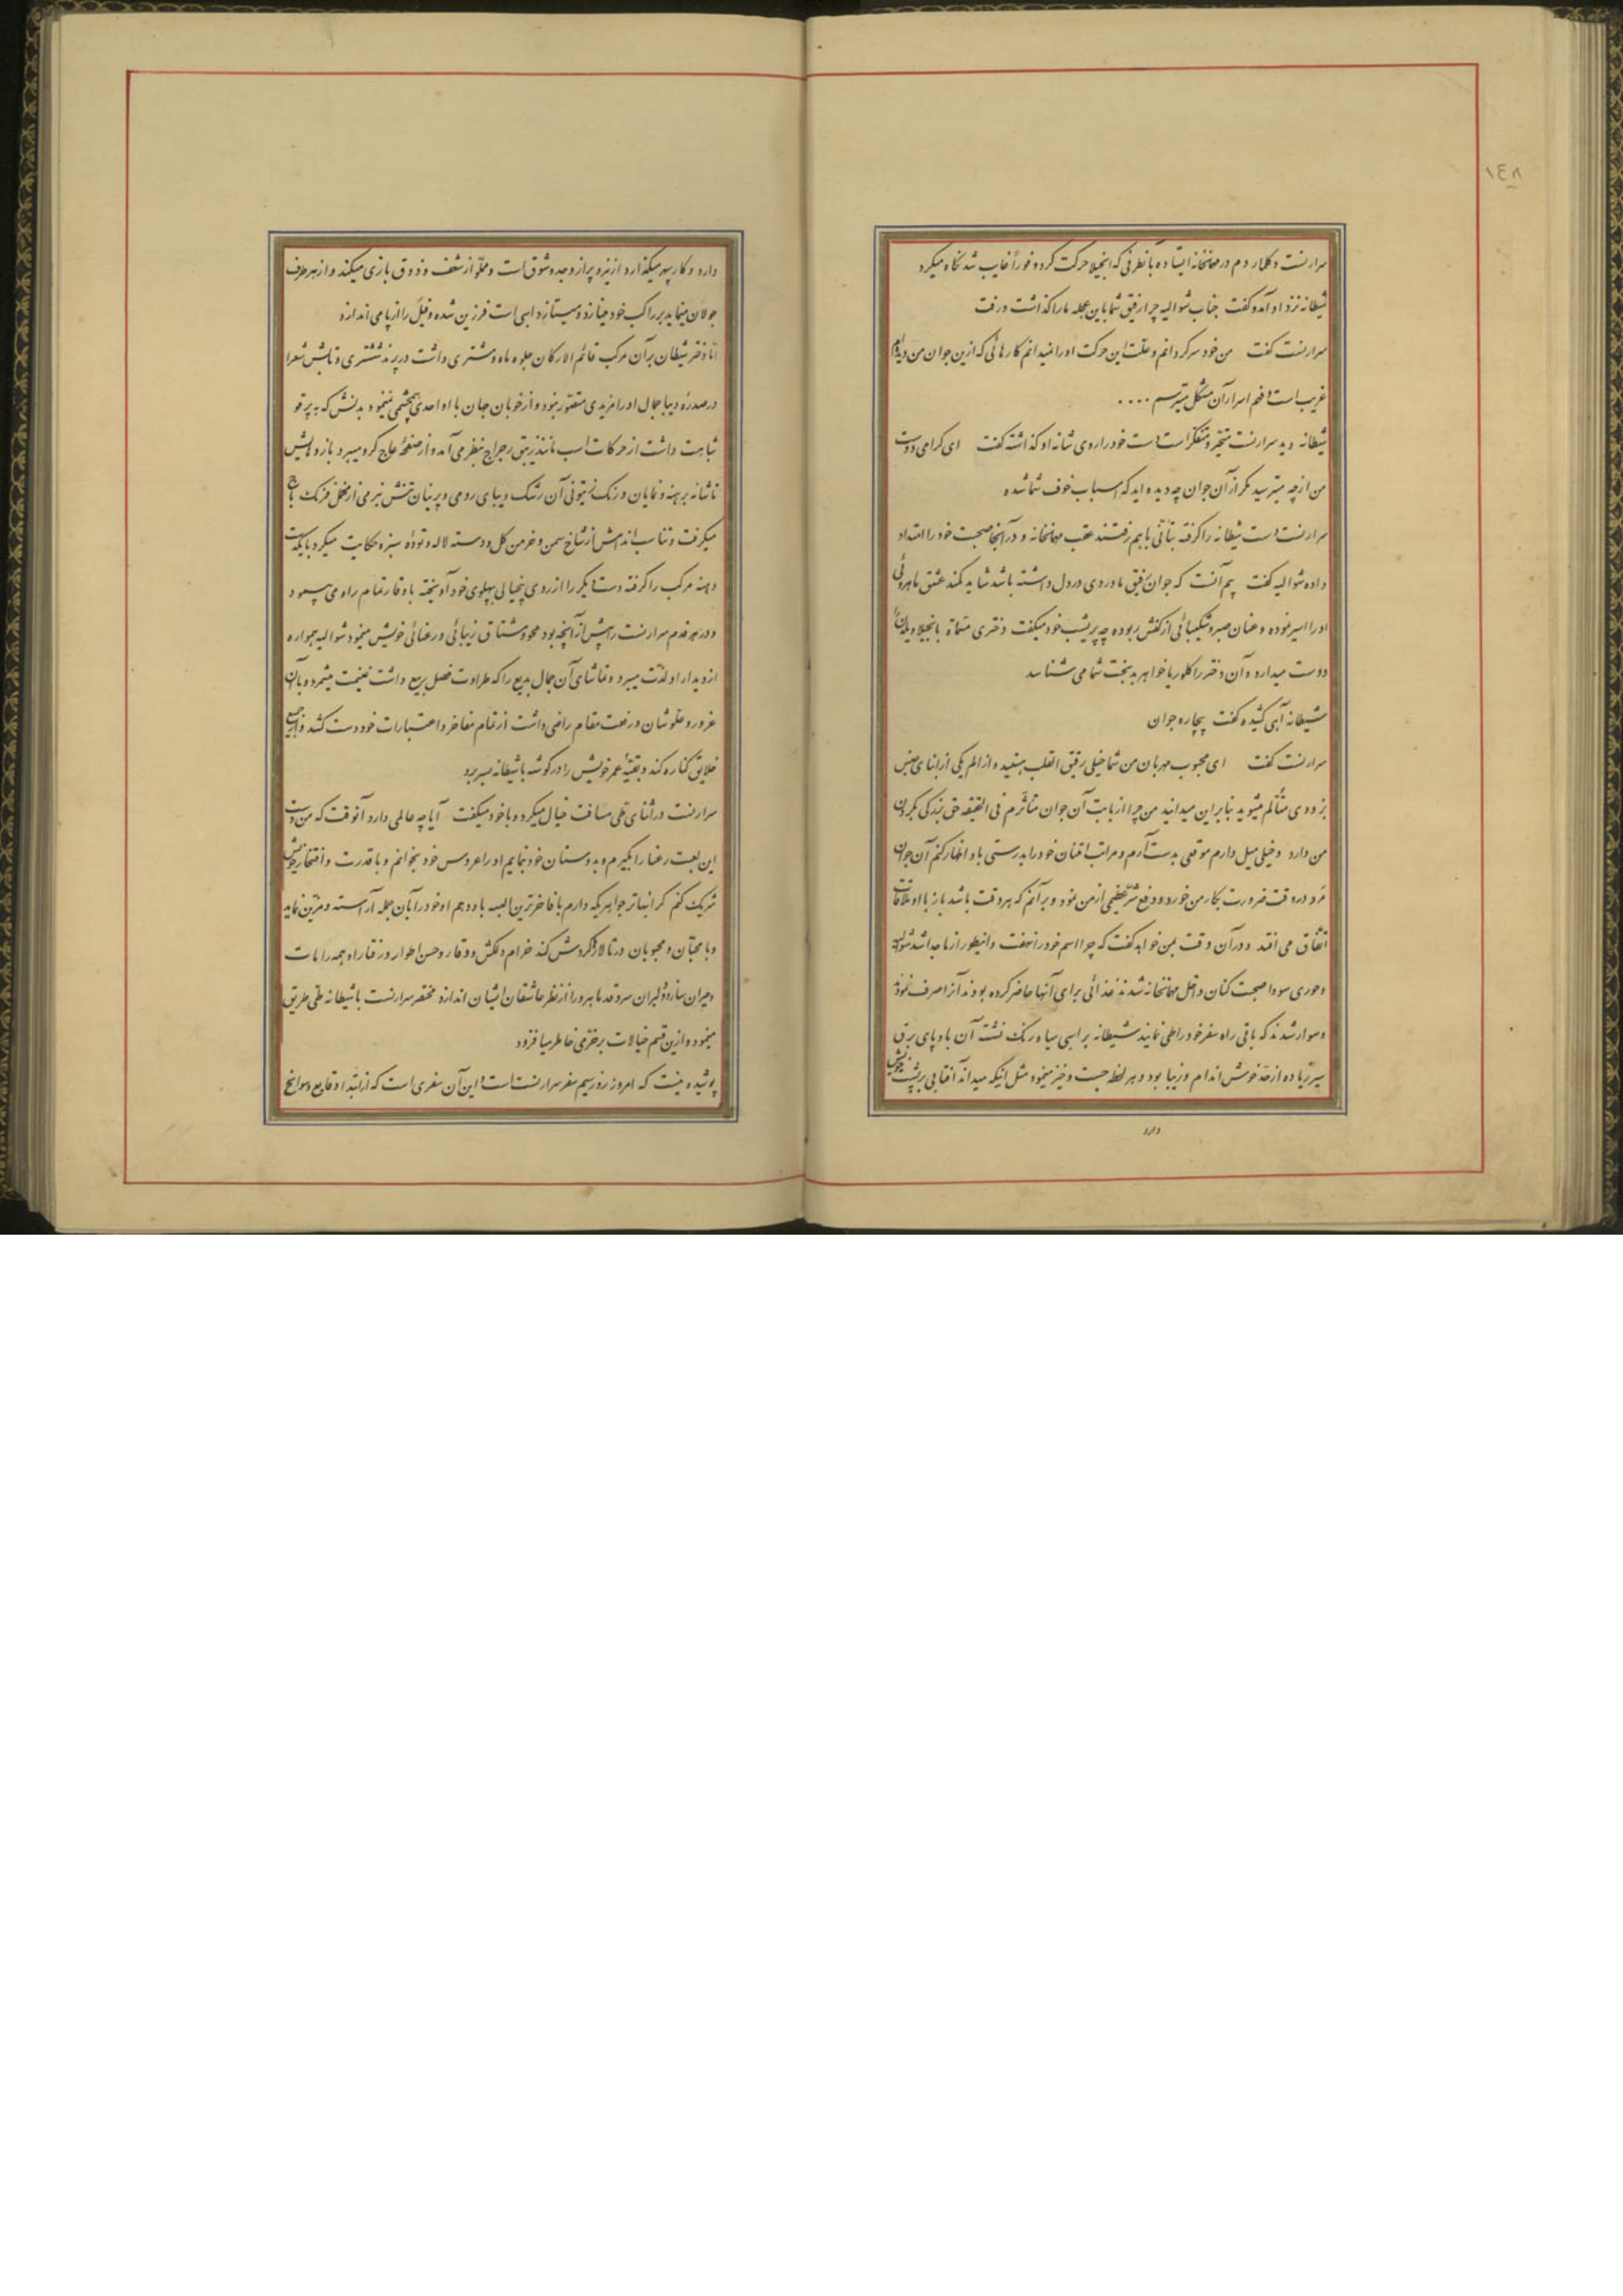 ١٤٨
سرارنست دکلمار دم در مهمانخانه ایستاده بآنطرفی که انجیلا حرکت کرد و فوراً غایب شد نگاه میکرد
شیطانه نزد او آمد و گفت جناب شوالیه چرا رفیق شما باین عجله ما را گذاشت و رفت
سرارنست گفت من خود سرگردانم و علّت این حرکت او را نمیدانم کارهائی که ازین جوان من دیده‌ام
غریب است و فهم اسرار آن مشکل میترسم ....
شیطانه دید سرارنست متحیّر و متفکّر است دست خود را روی شانه او گذاشته گفت ای گرامی دوست
من از چه میترسید مگر از آن جوان چه دیده‌اید که اسباب خوف شما شده
سرارنست دست شیطانه را گرفته بتأنّی باهم رفتند عقب مهمانخانه و در آنجا صحبت خود را امتداد
داده شوالیه گفت بیم آنست که جوان رفیق ما دردی در دل داشته باشد شاید کمند عشق ماهروئی
او را اسیر نموده و عنان صبر و شکیبائی از کفش ربوده چه پریشب خود میگفت دختری مسمّاة بانجیلا ویلدان را
دوست میدارد و آن دختر را گلوریا خواهر بدبخت شما می شناسد
شیطانه آهی کشیده گفت بیچاره جوان
سرارنست گفت ای محبوب مهربان من شما خیلی رقیق القلب هستید و از الم یکی از ابنای جنس
بزودی متألّم میشوید بنابراین میدانید من چرا از بابت آن جوان متأثّرم فی الحقیقه حق بزرگی بگردن
من دارد و خیلی میل دارم موقعی بدست آرم و مراتب امتنان خود را بدرستی باو اظهار کنم آن جوان
مرد در وقت ضرورت بکار من خورد و دفع شرّ عظیمی از من نمود و برآنم که هر وقت باشد باز با او ملاقات
اتّفاق می افتد و در آن وقت بمن خواهد گفت که چرا اسم خود را نهفت و اینطور از ما جدا شد شوالیه
و حوری سودا صحبت کنان داخل مهمانخانه شدند غذائی برای آنها حاضر کرده بودند آنرا صرف نموده
و سوار شدند که باقی راه سفر خود را طی نمایند شیطانه بر اسبی سیاه رنگ نشست آن باد پای برق
سیر زیاده از حدّ خوش اندام و زیبا بود و هر لحظه جست و خیز مینمود مثل اینکه میداند آفتابی بر پشت خویش
دارد
دارد و کار سپهر میگذارد از نیرو پر از وجد و شوق است و مملوّ از شعف و ذوق بازی میکند و از هر طرف
جولان مینماید بر راکب خود مینازد و میستازد اسبی است فرزین شده و فیل را از پا می اندازد
امّا دختر شیطان بر آن مرکب قائم الارکان جلوه ماه و مشتری داشت در پرند ششتری و تابش شعرا
در صدره دیبا جمال او را مزیدی متصّور نبود و از خوبان جهان با او احدی همچشمی نمینمود بدنش که به پرتو
شباهت داشت از حرکات اسب مانند زیبق رجراج بنظر می آمد و از صفحه عاج گرو میبرد بازوهایش
تا شانه برهنه و نمایان و رنگ زیتونی آن رشک دیبای رومی و پرنیان تنش بنرمی از مخمل فرنگ باج
میگرفت و تناسب اندامش از شاخ سمن و خرمن گل و دسته لاله و توده سبزه حکایت میکرد با یکدست
دهنه مرکب را گرفته دست دیگر را از روی بیخیالی بپهلوی خود آویخته با وقار تمام راه می پیمود
و در هر قدم سرارنست را بیش از آنچه بود محو و مشتاق زیبائی و رعنائی خویش مینمود شوالیه همواره
از دیدار او لذّت میبرد و تماشای آن جمال بدیع را که طراوت فصل ربیع داشت غنیمت میشمرد و بآن
غرور و علوّ شان و رفعت مقام راضی داشت از تمام مفاخر و اعتبارات خود دست کشد و از جمیع
خلایق کناره کند و بقیّه عمر خویش را در گوشه با شیطانه بسر برد
سرارنست در اثنای طیّ مسافت خیال میکرد و با خود میگفت آیا چه عالمی دارد آنوقت که من دست
این لعبت رعنا را بگیرم و بدوستان خود بنمایم او را عروس خود بخوانم و با قدرت و افتخار خویش
شریک کنم گرانبهاتر جواهریکه دارم با فاخرترین البسه باو دهم او خود را بآن جمله آراسته و مزیّن نماید
و با محبّان و محبوبان در تالار گردش کند خرام دلکش و وقار و حسن اطوار و رفتار او همه را مات
و حیران سازد و دلبران سروقد ماهرو را از نظر عاشقان ایشان اندازد مختصر سرارنست با شیطانه طیّ طریق
مینمود و ازین قسم خیالات بر خرّمی خاطر میافزود
پوشیده نیست که امروز روز سیم سفر سرارنست است و این آن سفری است که از ابتدا وقایع و سوانح